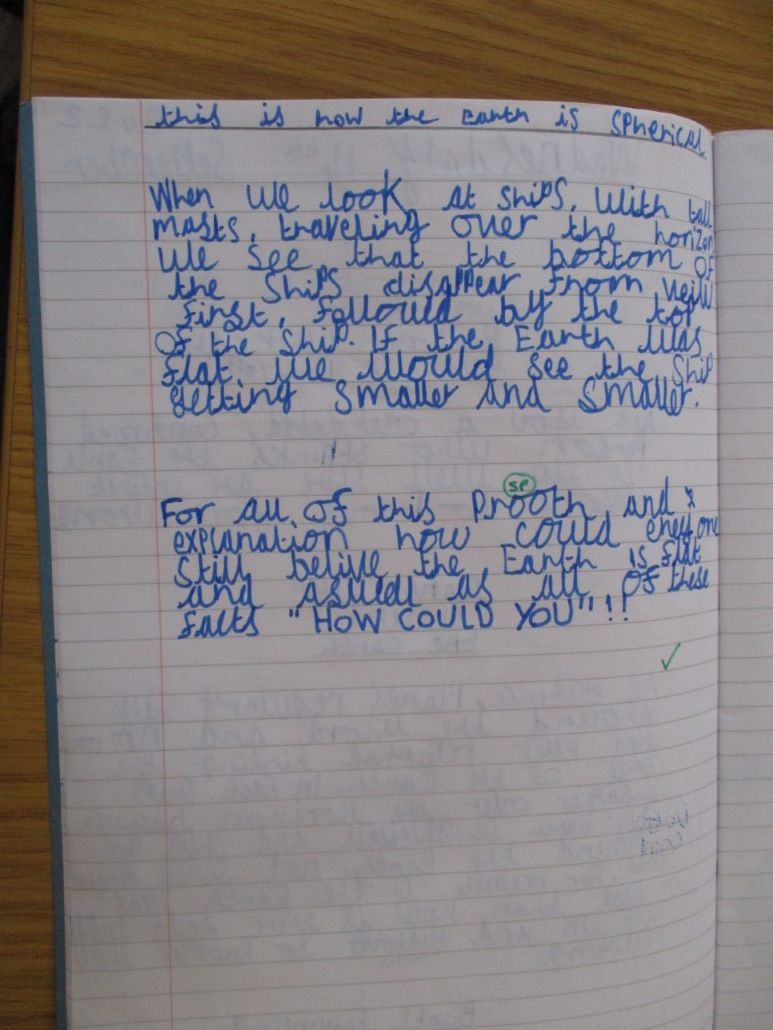 this is how the Earth is spherical
When we look at ships, with tall
masts, traveling over the horizon
we see that the bottom of
the ships disappear from veiw
first, followed by the top
of the ship. If the Earth was
flat, we would see the ship
getting smaller and smaller.
SP
For all of this prooth and
explanation how could eneyone
still belive the Earth is flat
and as well as all of these
facts "HOW COULD YOU"!!